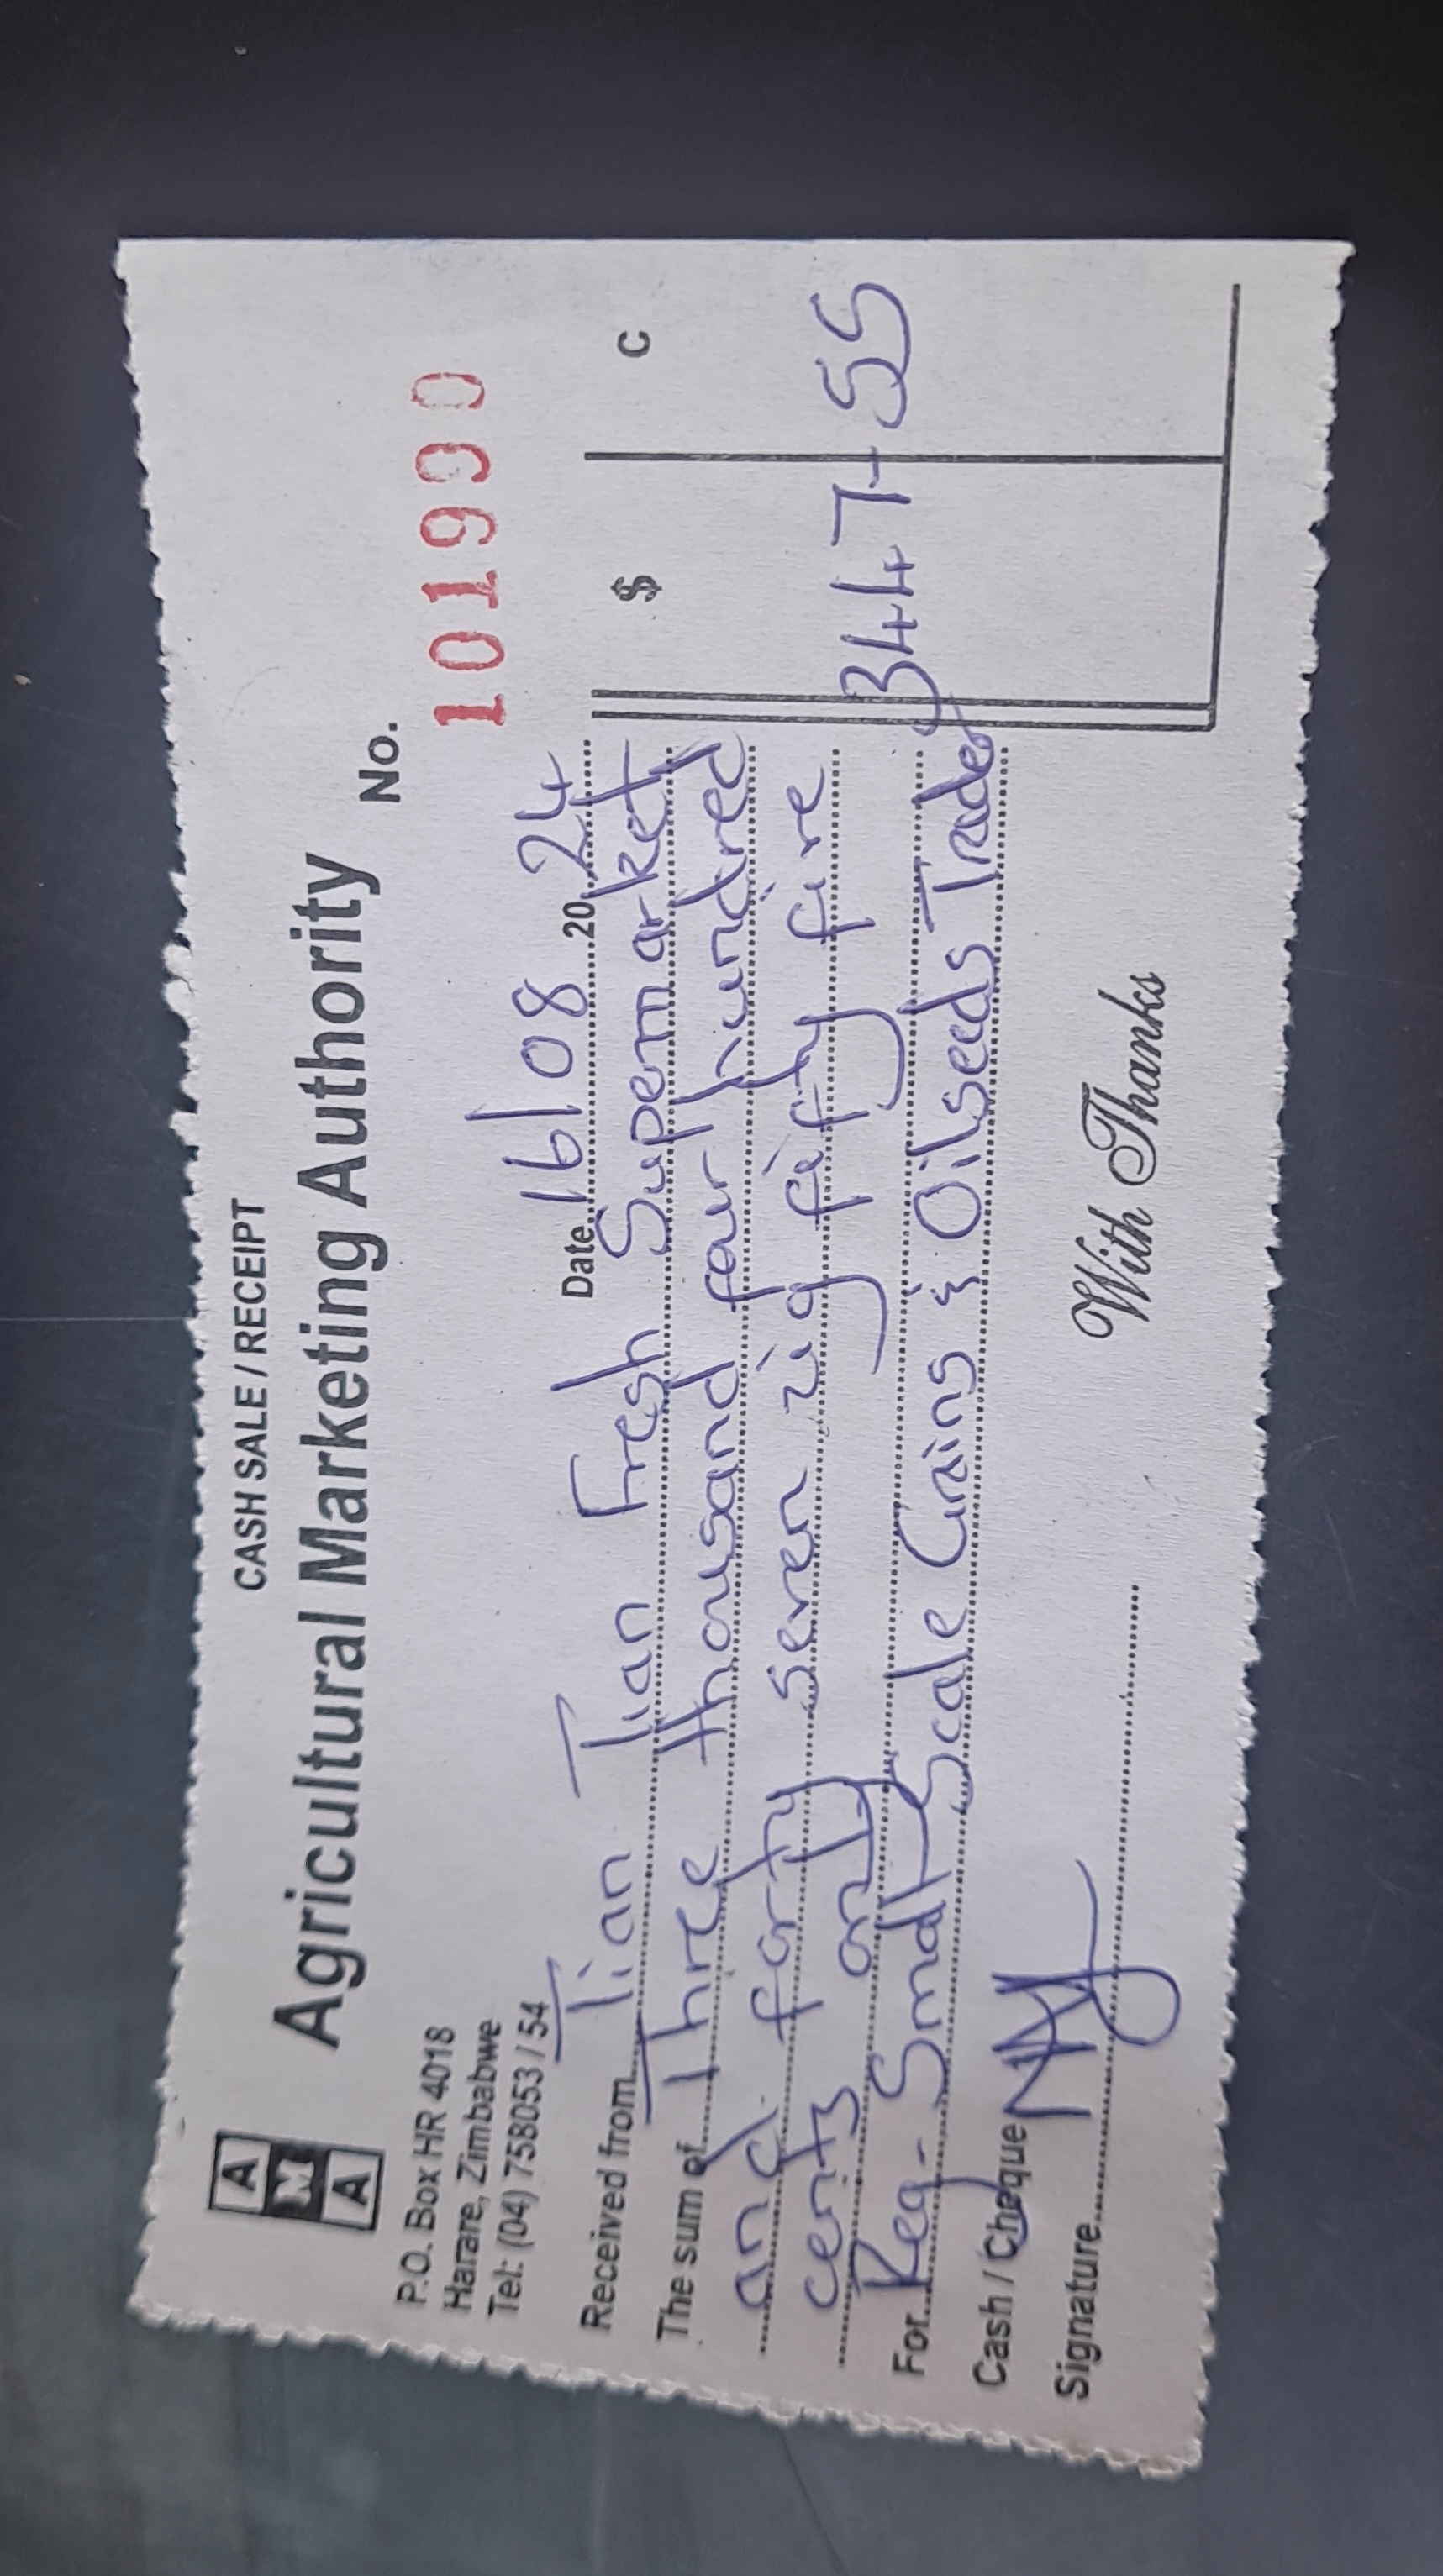 CASH SALE / RECEIPT
A
M
A
Agricultural Marketing Authority
P.O. Box HR 4018
Harare, Zimbabwe
Tel: (04) 758053 / 54
No. 101990
Date 16/08 20 24
Received from Tian Tian Fresh Supermarket
The sum of Three thousand four hundred
and forty seven zig fifty five
cents only
For Reg- Small Scale Grains & Oilseeds Trader
$ C
3447-55
Cash / Cheque
Signature
With Thanks